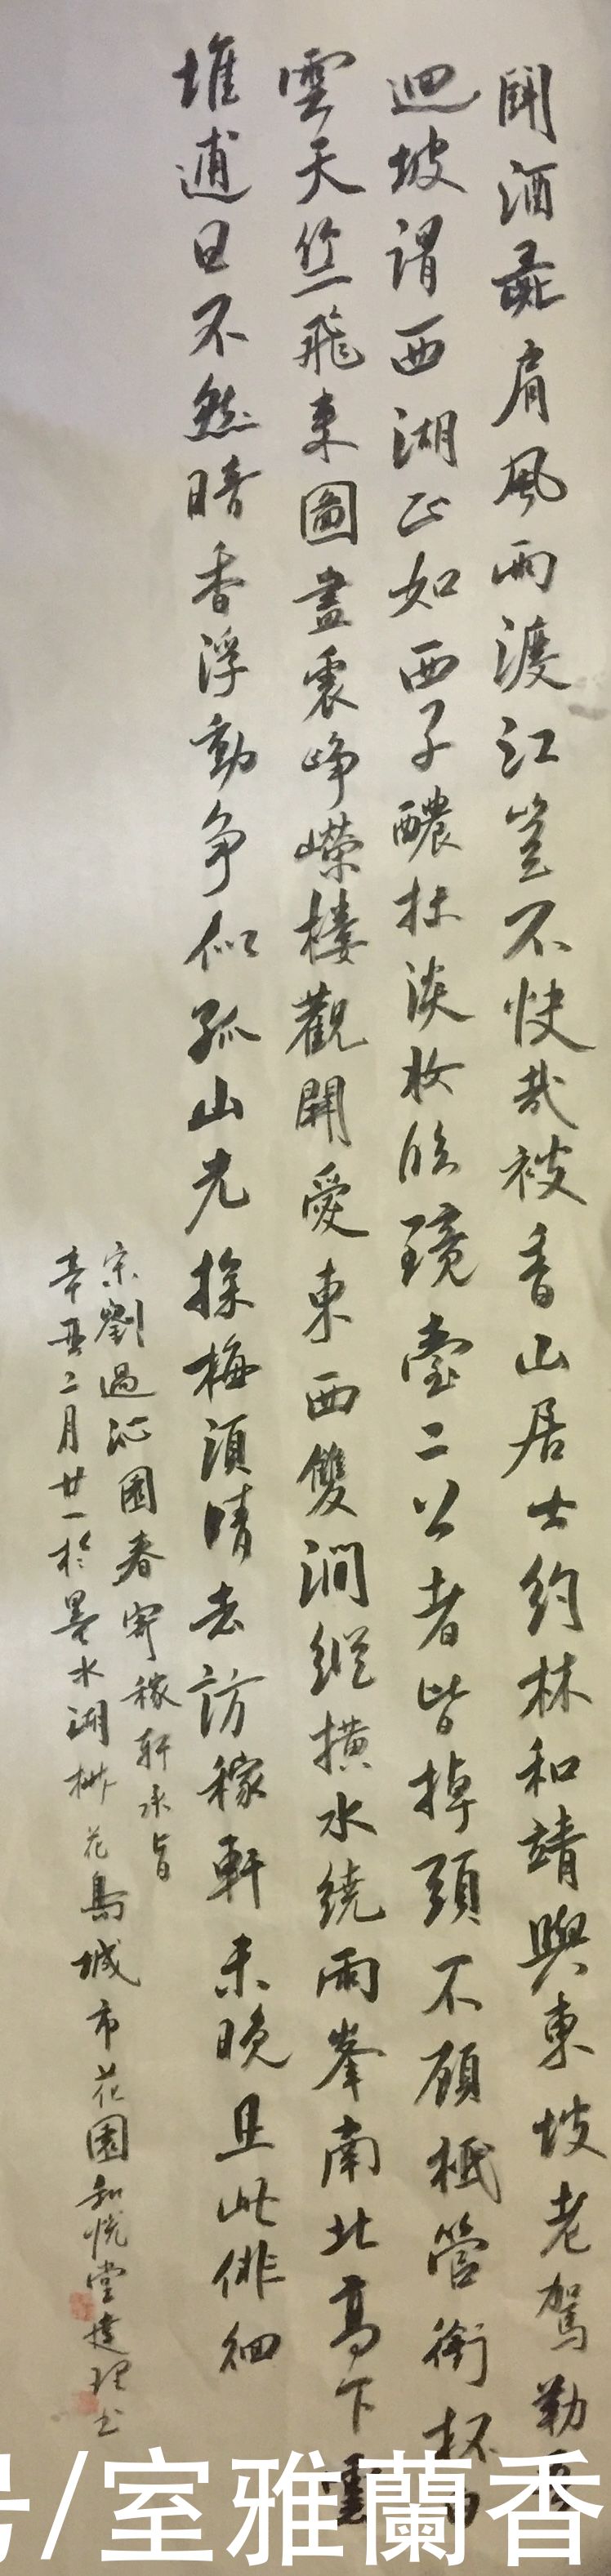 鬪酒彘肩風雨渡江豈不快哉被香山居士約林和靖與東坡老駕勒吾
迴坡謂西湖正如西子醲抹淡妝臨鏡臺二公者皆掉頭不顧柢管銜杯白
雲天竺飛來圖畫裏崢嶸樓觀開愛東西雙澗縱橫水繞兩峯南北高下雲
堆逋曰不然暗香浮動爭似孤山先探梅須晴去訪稼軒未晚且此徘徊
宋劉過沁園春寄稼軒承旨
辛丑二月廿一於墨水湖畔花島城市花園知悅堂建理书
号/室雅蘭香